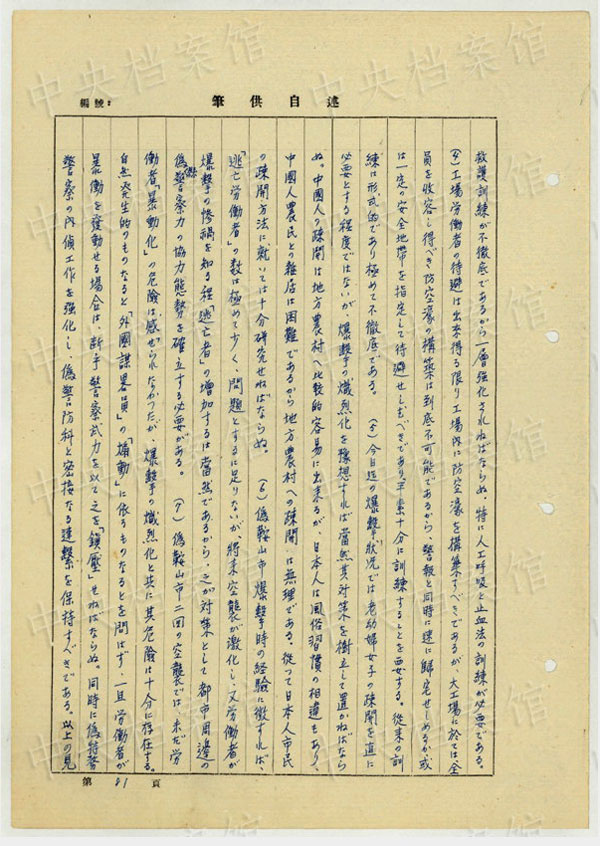 筆供述自
編號：
救護訓練が不徹底であるから一層強化されねばならぬ。特に人工呼吸と止血法の訓練が必要である。
(4) 工場労働者の待避は出来得る限り工場内に防空濠を構築すべきであるが、大工場に於ては全
員を收容し得べき防空濠の構築は到底不可能であるから、警報と同時に速に歸宅せしめるか或
は一定の安全地帯を指定して待避せしむべきであり平素十分に訓練することを要する。従来の訓
練は形式的であり極めて不徹底である。 (5) 今日迄の爆撃状況では老幼婦女子の疎開を直に
必要とする程度ではないが、爆撃の熾烈化を予想すれば當然其対策を樹立して置かねばなら
ぬ。中國人の疎開は地方農村へ比較的容易に出来るが、日本人は風俗習慣の相違もあり、
中國人農民との雑居は困難であるから地方農村への疎開は無理である。従つて日本人市民
の疎開方法に就いては十分研究せねばならぬ。 (6) 偽鞍山市爆撃時の経験に徴すれば、
「逃亡労働者」の数は極めて少く、問題とするに足りないが、將来空襲が激化し、又労働者が
爆撃の惨禍を知る程「逃亡者」の増加するは當然であるから、之が対策として都市周邊の
偽警察力の協力態勢を確立する必要がある。 (7) 偽鞍山市二回の空襲では、未だ労
働者「暴動化」の危險は感ぜられなかつたが、爆撃の熾烈化と共に其危險は十分に存在する。
自然発生的のものなると「外國謀畧員」の「煽動」に依るものなるとを問はず、一旦労働者が
暴動を發動せる場合は、断乎警察武力を以て之を「鎮壓」せねばならぬ。同時に偽特務
警察の内偵工作を強化し、偽警防科と密接なる連繫を保持すべきである。以上の見
第 21 頁
中央档案馆